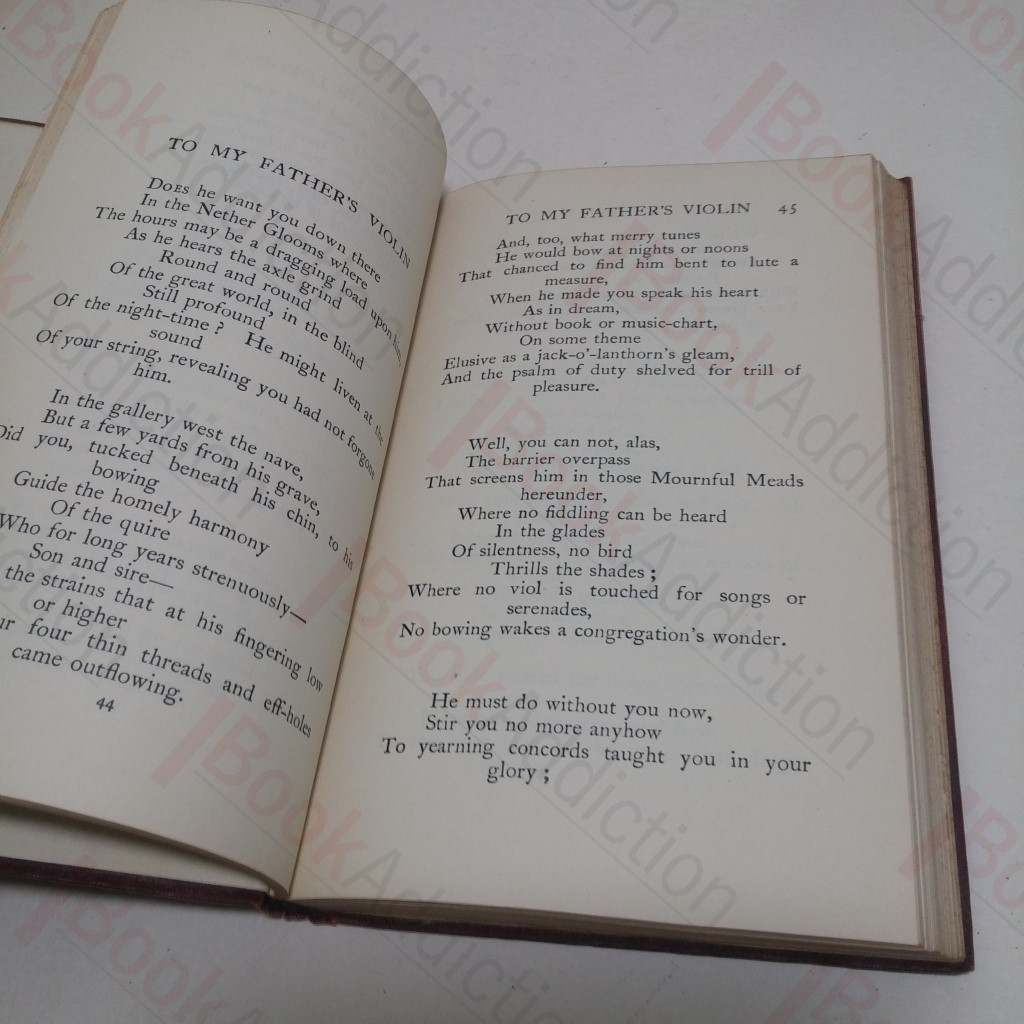 TO MY FATHER'S VIOLIN
DOES he want you down there
In the Nether Glooms where
The hours may be a dragging load upon him,
As he hears the axle grind
Round and round
Of the great world, in the blind
Still profound
Of the night-time? He might liven at the
sound
Of your string, revealing you had not forgone
him.
In the gallery west the nave,
But a few yards from his grave,
Did you, tucked beneath his chin, to his
bowing
Guide the homely harmony
Of the quire
Who for long years strenuously—
Son and sire—
the strains that at his fingering low
or higher
four thin threads and eff-holes
came outflowing.
44
TO MY FATHER'S VIOLIN 45
And, too, what merry tunes
He would bow at nights or noons
That chanced to find him bent to lute a
measure,
When he made you speak his heart
As in dream,
Without book or music-chart,
On some theme
Elusive as a jack-o'-lanthorn's gleam,
And the psalm of duty shelved for trill of
pleasure.
Well, you can not, alas,
The barrier overpass
That screens him in those Mournful Meads
hereunder,
Where no fiddling can be heard
In the glades
Of silentness, no bird
Thrills the shades;
Where no viol is touched for songs or
serenades,
No bowing wakes a congregation's wonder.
He must do without you now,
Stir you no more anyhow
To yearning concords taught you in your
glory;
BookAddiction